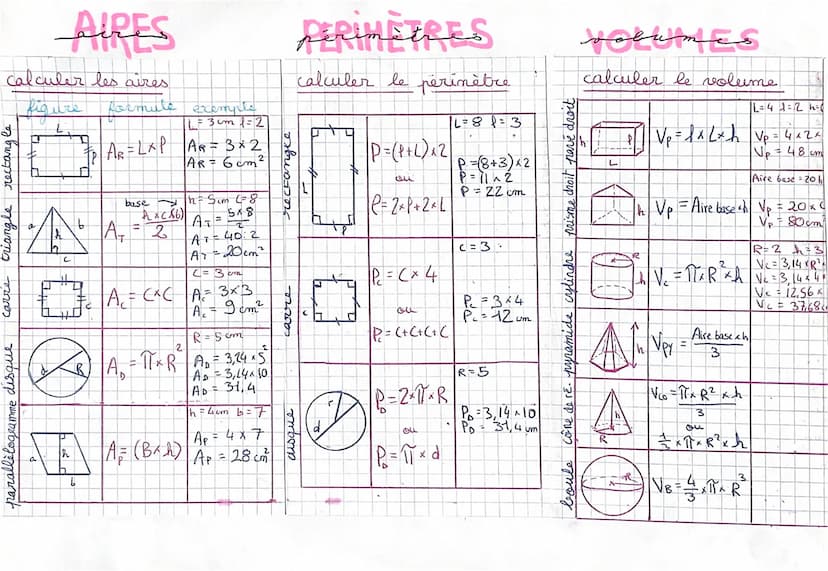 AIRES
aires
calculer les aires
figure formule exemple
rectangle
L
l
AR = L×l
L = 3 cm l = 2
AR = 3 × 2
AR = 6 cm²
triangle
a b h c
base
AT = h×c(b) / 2
h = 5 cm C = 8
AT = 5×8 / 2
AT = 40:2
AT = 20 cm²
carré
c
Ac = C×C
C = 3 cm
Ac = 3×3
Ac = 9 cm²
disque
d R
AD = π×R²
R = 5 cm
AD = 3,14 × 5²
AD = 3,14 × 10
AD = 31,4
parallélogramme
a h b
AP = (B×h)
h = 4 cm b = 7
AP = 4 × 7
AP = 28 cm²
PÉRIMÈTRES
périmètres
calculer le périmètre
rectangle
L
l
P = (l+L)×2
ou
P = 2×l+2×L
L = 8 l = 3
P = (8+3)×2
P = 11 × 2
P = 22 cm
carré
c
Pc = C × 4
ou
Pc = C+C+C+C
C = 3
Pc = 3×4
Pc = 12 cm
disque
r
d
PD = 2×π×R
ou
PD = π × d
R = 5
PD = 3,14 × 10
PD = 31,4 cm
VOLUMES
volumes
calculer le volume
pavé droit
h l L
Vp = l×L×h
L = 4 l = 2 h =
Vp = 4×2×
Vp = 48 cm
prisme droit
h
Vp = Aire base×h
Aire base = 20
Vp = 20×
Vp = 80cm
cylindre
R
h
Vc = π×R²×h
R = 2 h = 3
Vc = 3,14×R²
Vc = 3,14×4×
Vc = 12,56×
Vc = 37,68
pyramide
h
VPY = Aire base×h / 3
cône de ré.
h
R
Vco = π×R²×h / 3
ou
1/3×π×R²×h
boule
R
VB = 4/3×π×R³